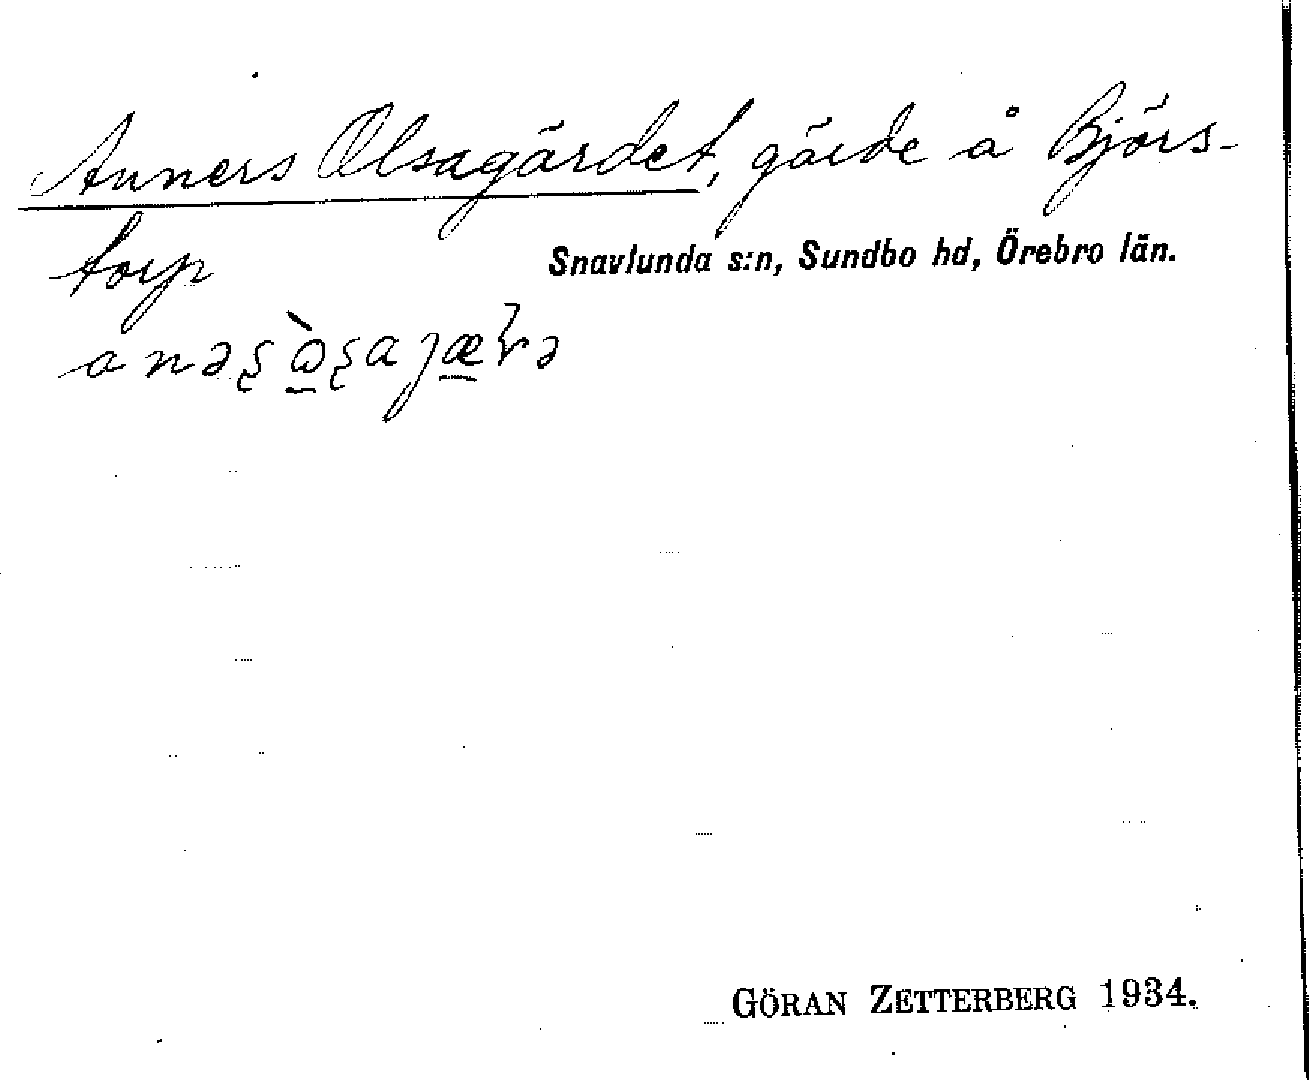 Anners Olsagärdet, gärde å Björs-
torp
Snavlunda s:n, Sundbo hd, Örebro län.
GÖRAN ZETTERBERG 1934.